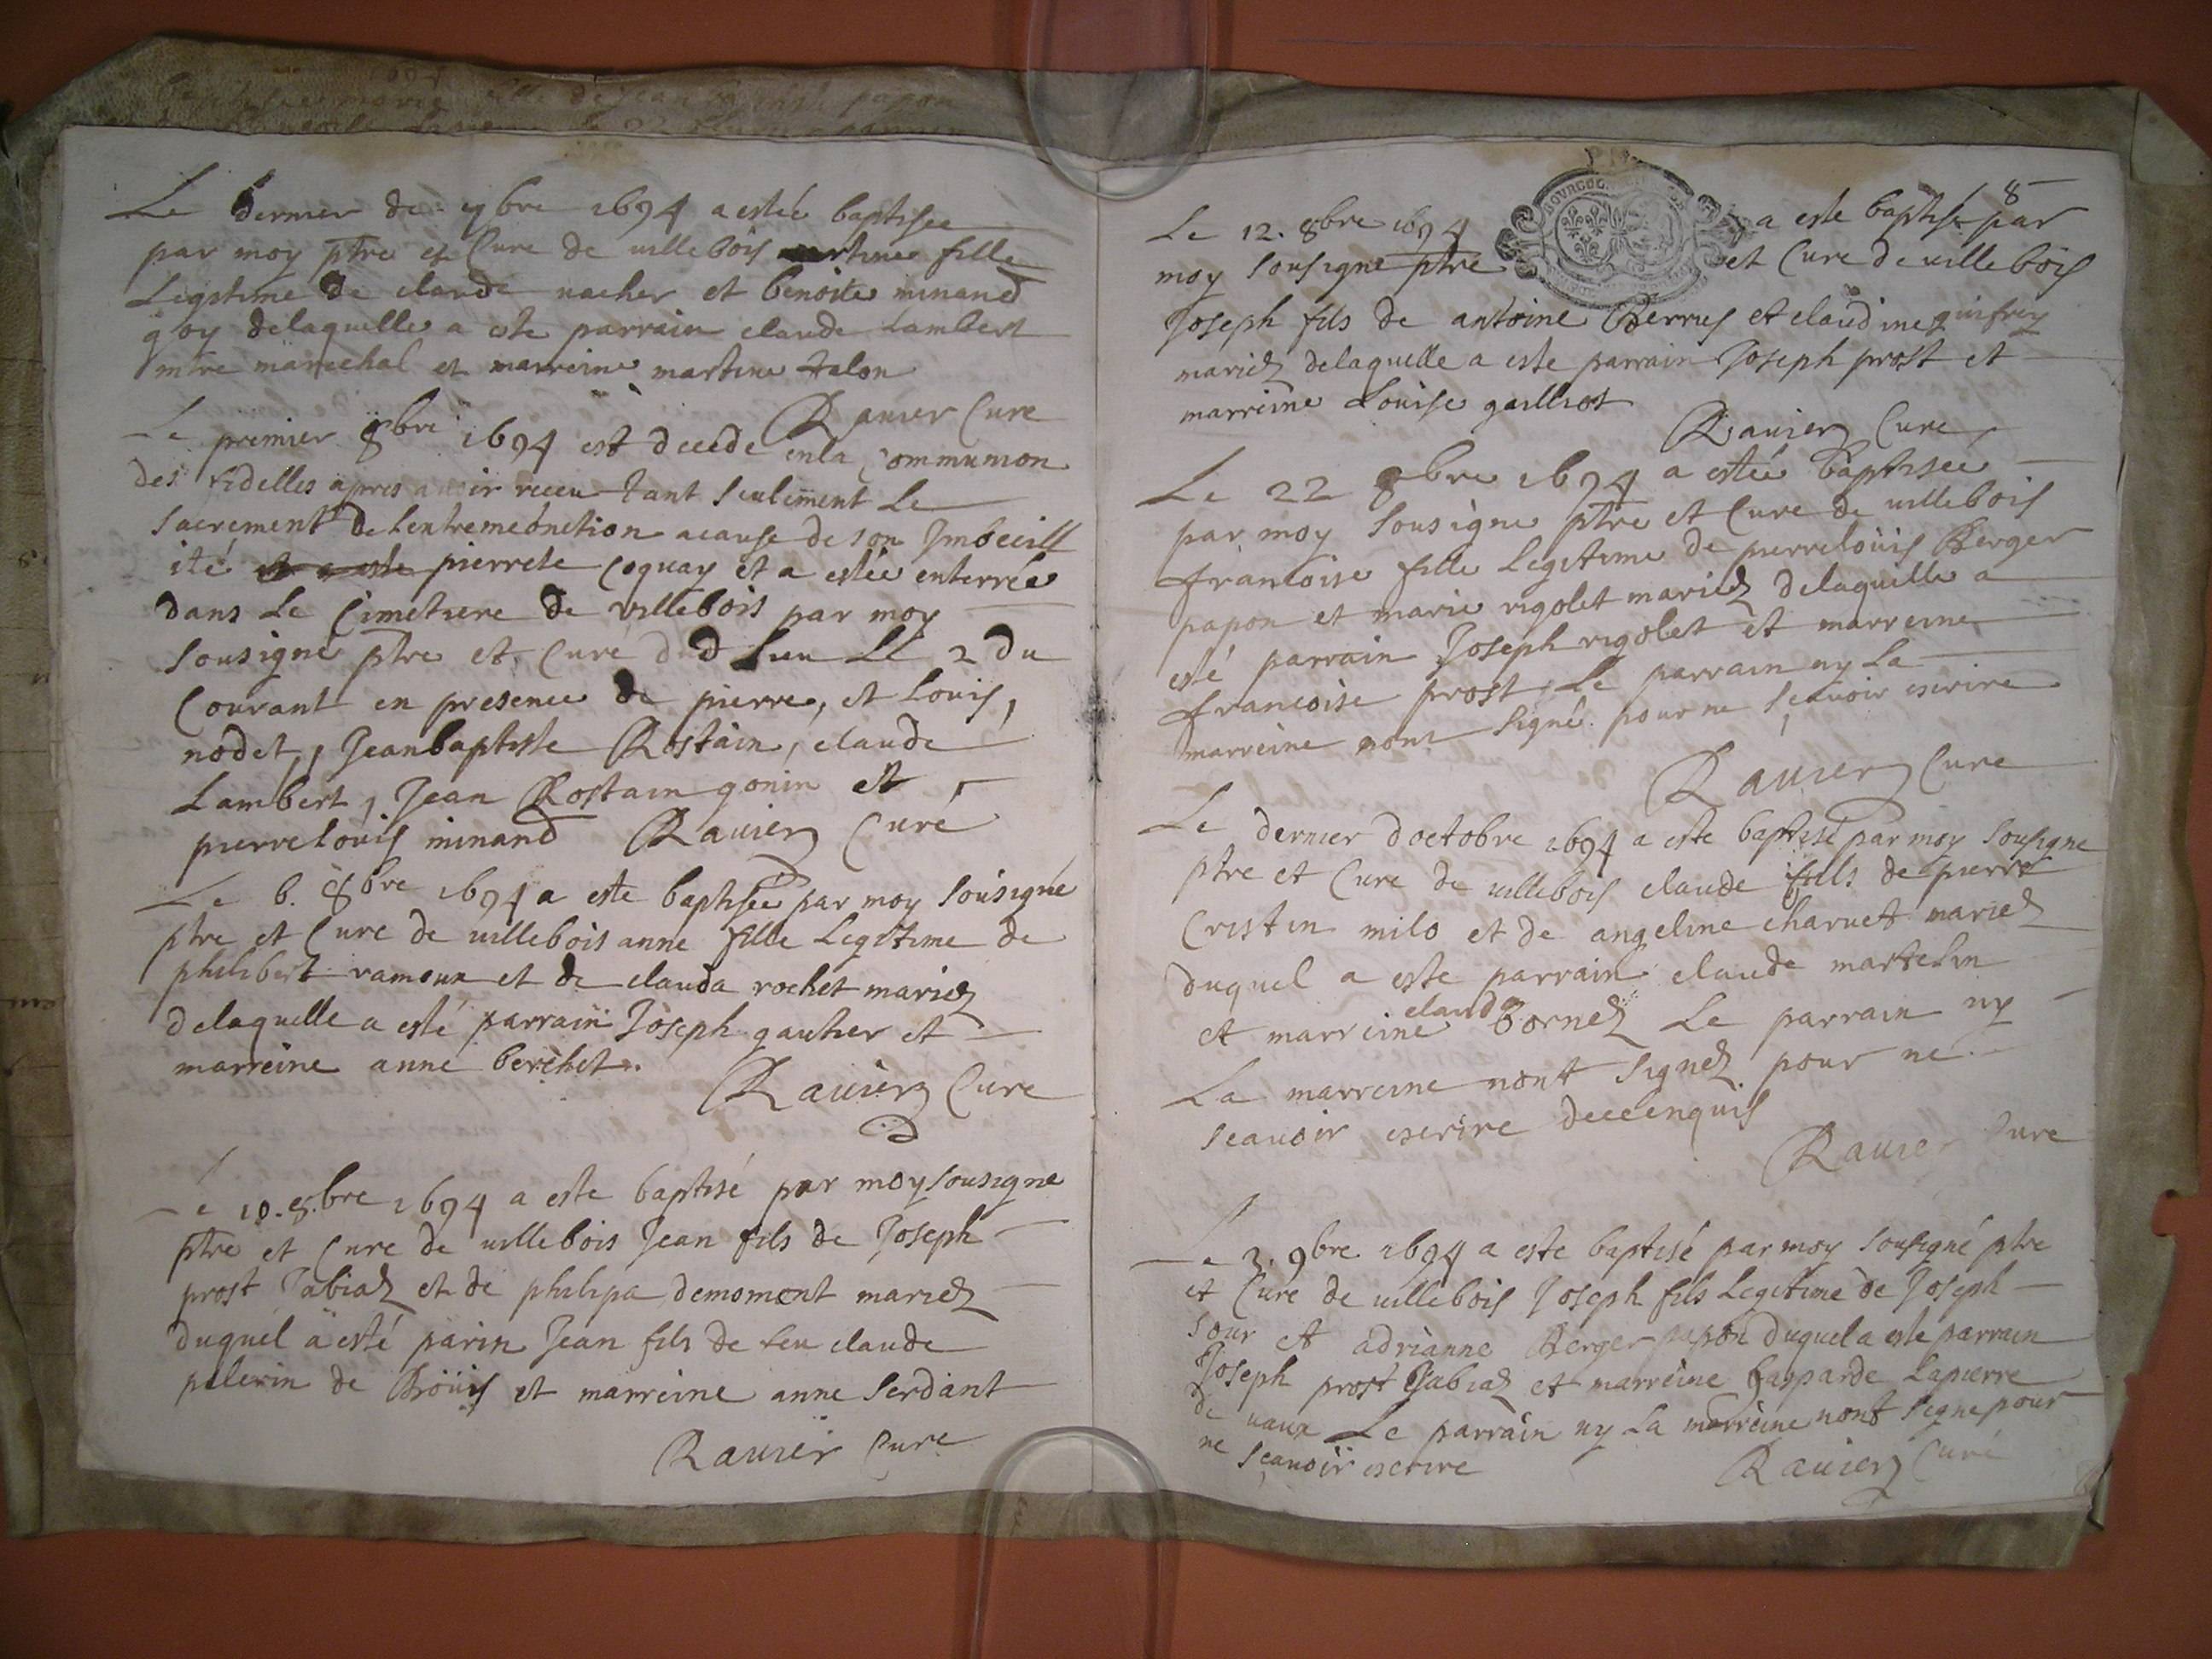 Le dernier de 7bre 1694 a estée baptisee
par moy ptre et Cure de villebois martine fille
Legitime de claude vacher et benoite minand
goy delaquelle a este parrain claude Lambert
mtre marechal et marreine martine talon
Ravier Cure
Le premier 8bre 1694 est decede enla Communion
des fidelles apres avoir receu tant seulement Le
sacrement de Lentremeonction acause de son Imbecill
ité pierrete Coquay et a estée enterrée
dans Le Cimetiere de villebois par moy
sousigné ptre et Curé dud Lieu Le 2 du
Courant en presence de pierre, et Louis,
nodet, Jeanbaptiste Rostain, claude
Lambert, Jean Rostain gonin et
pierrelouis minand Ravier Curé
Le 6. 8bre 1694 a este baptisée par moy sousigné
ptre et Cure de villebois anne fille Legitime de
philibert ramoux et de clauda rochet mariez
delaquelle a esté parrain Joseph gautier et
marreine anne berchet.
Ravier Cure
Le 10. 8.bre 1694 a este baptisé par moy sousigne
ptre et Cure de villebois Jean fils de Joseph
prost Jabiaz et de philipa demoment mariez
duquel a esté parin Jean fils de feu claude
pelerin de Broüis et marreine anne serdant
Ravier Cure
8
Le 12. 8bre 1694 a este baptise par
moy sousigne ptre et Cure de villebois
Joseph fils de antoine Berrus et claudine
mariez delaquelle a este parrain Joseph prost et
marreine Louise gailliot
Ravier Cure
Le 22 8bre 1694 a estée baptisee
par moy sousigne ptre et Cure de villebois
francoise fille Legitime de pierrelouis Berger
papon et marie rigolet mariez delaquelle a
esté parrain Joseph rigolet et marreine
francoise prost Le parrain ny La
marreine nont signé pour ne sçavoir escrire
Ravier Cure
Le dernier doctobre 1694 a este baptisé par moy sousigne
ptre et Cure de villebois claude fils de pierre
Cristin milo et de angeline charvet mariez
duquel a este parrain claude martelin
et marreine claud bornez Le parrain ny
La marreine nont signez pour ne
scavoir escrire deceenquis
Ravier Cure
Le 3. 9bre 1694 a este baptisé par moy sousigné ptre
et Cure de villebois Joseph fils Legitime de Joseph
sour et adrianne Berger papon duquel a este parrain
Joseph prost Jabiaz et marreine gasparde Lapierre
de vaux Le parrain ny La marreine nont signe pour
ne sçavoir escrire Ravier Curé